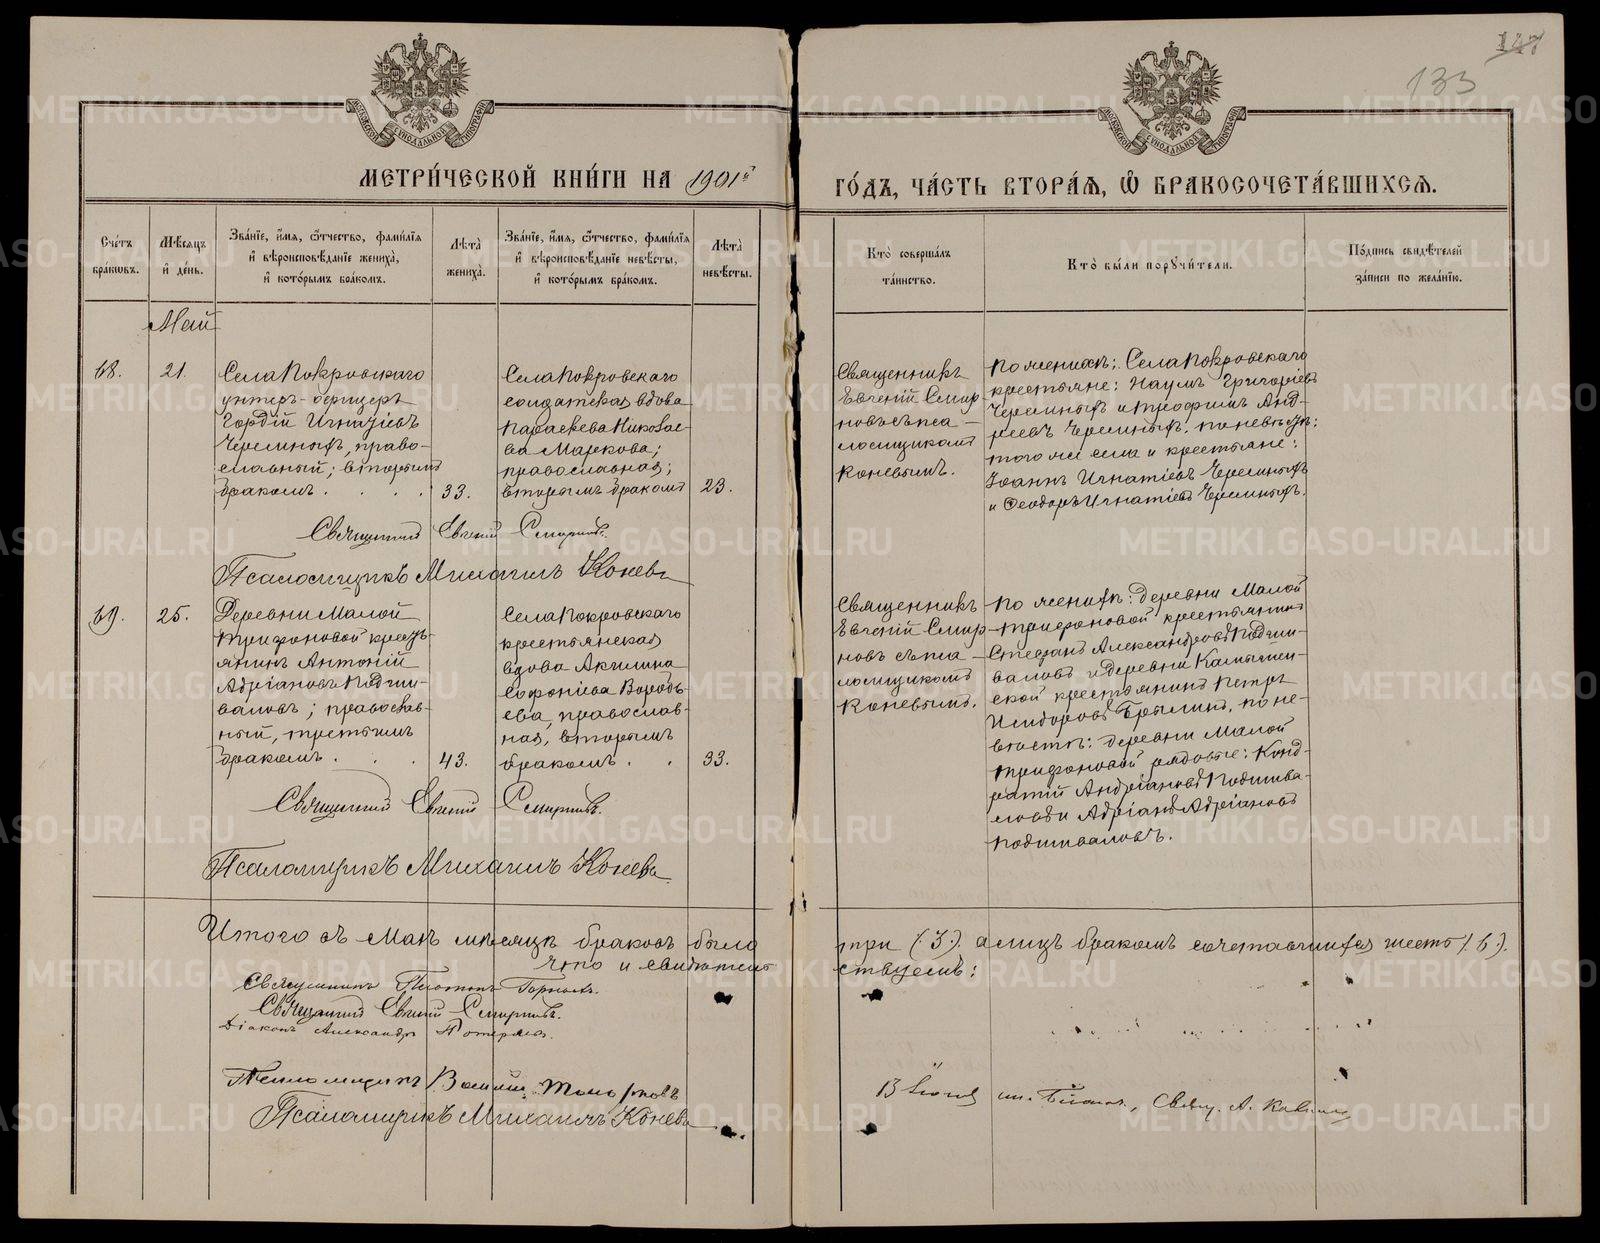 147
133
МЕТРИ́ЧЕСКОЙ КНИ́ГИ НА 1901й
ГО́ДЪ, ЧА́СТЬ ВТОРА́Ѧ, Ѡ҆ БРАКОСОЧЕТА́ВШИХСѦ.
Сче́тъ бра́ковъ.
Мѣ́сяцъ и҆ де́нь.
Зва́нїе, и҆́мя, ѻ҆́тчество, фами́лїя и҆ вѣроисповѣ́данїе жениха̀, и҆ кото́рымъ бракомъ.
Лѣта̀ жениха̀.
Зва́нїе, и҆́мя, ѻ҆́тчество, фами́лїя и҆ вѣроисповѣ́данїе невѣ́сты, и҆ кото́рымъ бра́комъ.
Лѣта̀ невѣ́сты.
Кто̀ соверша́лъ та́инство.
Кто̀ бы́ли порꙋчи́тели.
По́дпись свидѣ́телей за́писи по жела́нїю.
Май
68.
21.
Села Покровскаго
унтеръ-офицеръ
Гордій Игнатіевъ
Черемныхъ, право-
славный; вторымъ
бракомъ . . . .
33.
Села Покровскаго
солдатская вдова
Параскева Николае-
ва Маркова;
православная;
вторымъ бракомъ
23.
Священникъ
Евгеній Смир-
новъ съ пса-
ломщикомъ
Коневымъ.
По женихѣ: Села Покровскаго
крестьяне: Наумъ Григоріевъ
Черемныхъ и Трофимъ Анд-
реевъ Черемныхъ, по невѣстѣ:
того же села и крестьяне:
Іоаннъ Игнатіевъ Черемныхъ
и Ѳеодоръ Игнатіевъ Черемныхъ.
Священникъ Евгеній Смирновъ.
Псаломщикъ Михаилъ Коневъ
69.
25.
Деревни Малой
Трифоновой кресть-
янинъ Антоній
Адріановъ Подши-
валовъ; православ-
ный, третьимъ
бракомъ . . .
43.
Села Покровскаго
крестьянская
вдова Акилина
Софоніева Воробь-
ева, православ-
ная, вторымъ
бракомъ . .
33.
Священникъ
Евгеній Смир-
новъ съ пса-
ломщикомъ
Коневымъ.
По женихѣ: Деревни Малой
Трифоновой крестьянинъ
Стефанъ Александровъ Подши-
валовъ и деревни Камышен-
ской крестьянинъ Петръ
Исидоровъ Брылинъ, по не-
вѣстѣ: деревни Малой
Трифоновой рядовые: Конд-
ратій Андріановъ Подшива-
ловъ и Адріанъ Адріановъ
Подшиваловъ.
Священникъ Евгеній Смирновъ.
Псаломщикъ Михаилъ Коневъ
Итого въ Маѣ мѣсяцѣ браковъ было три (3). а лицъ бракомъ сочетавшихся шесть (6).
что и свидѣтельствуемъ:
Священникъ Платонъ Горныхъ.
Священникъ Евгеній Смирновъ.
Діаконъ Александръ
Псаломщикъ
Псаломщикъ Михаилъ Коневъ
Свящ. А.
METRIKI.GASO-URAL.RU